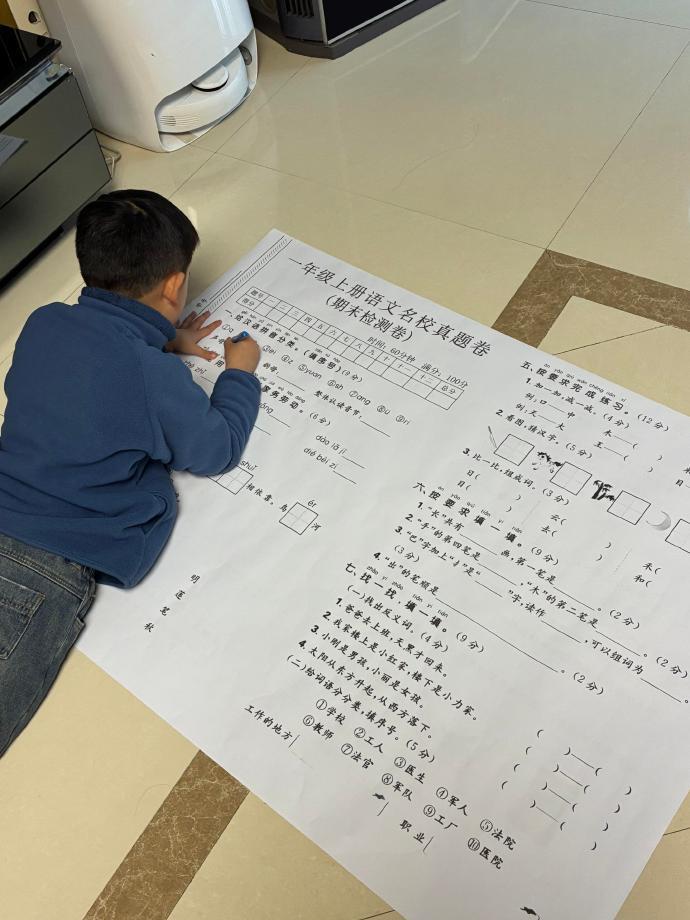 一年级上册语文名校真题卷
(期末检测卷)
时间:60分钟 满分:100分
题号 一 二 三 四 五 六 七 八 九 十 十一 十二 总分
得分
一、给汉语拼音归类。(填序号)(8分)
④z ⑤yuan ⑥sh ⑦ang ⑧u ⑨ri
整体认读音节:
(6分)
dào lā jī
dié bèi zi
相依靠。鸟
ér
河
明 莲 茗 秋
五、按要求完成练习。(12分)
1.加一加,减一减。(4分)
例:口——中 木——( )
例:天——大 王——( )
2.看图,猜汉字。(5分)
3.比一比,组成词。(3分)
日( ) 云( ) 禾(
目( ) 去( ) 和(
六、按要求填一填。(9分)
1.“长”共有 画,第一笔是 。(2分)
2.“手”的第四笔是 ,“木”的第二笔是 。(2分)
3.“巴”字加上“扌”是“ ”字,读作 ,可以组词为 。
(3分)
4.“出”的笔顺是 。(2分)
七、找一找,填一填。(9分)
(一)找出反义词。(4分)
1.爸爸去上班,天黑才回来。 ( )——( )
2.我家楼上是小红家,楼下是小力家。 ( )——( )
3.小刚是男孩,小丽是女孩。 ( )——( )
4.太阳从东方升起,从西方落下。 ( )——( )
(二)给词语分分类,填序号。(5分)
①学校 ②工人 ③医生 ④军人 ⑤法院
⑥教师 ⑦法官 ⑧军队 ⑨工厂 ⑩医院
工作的地方
职业